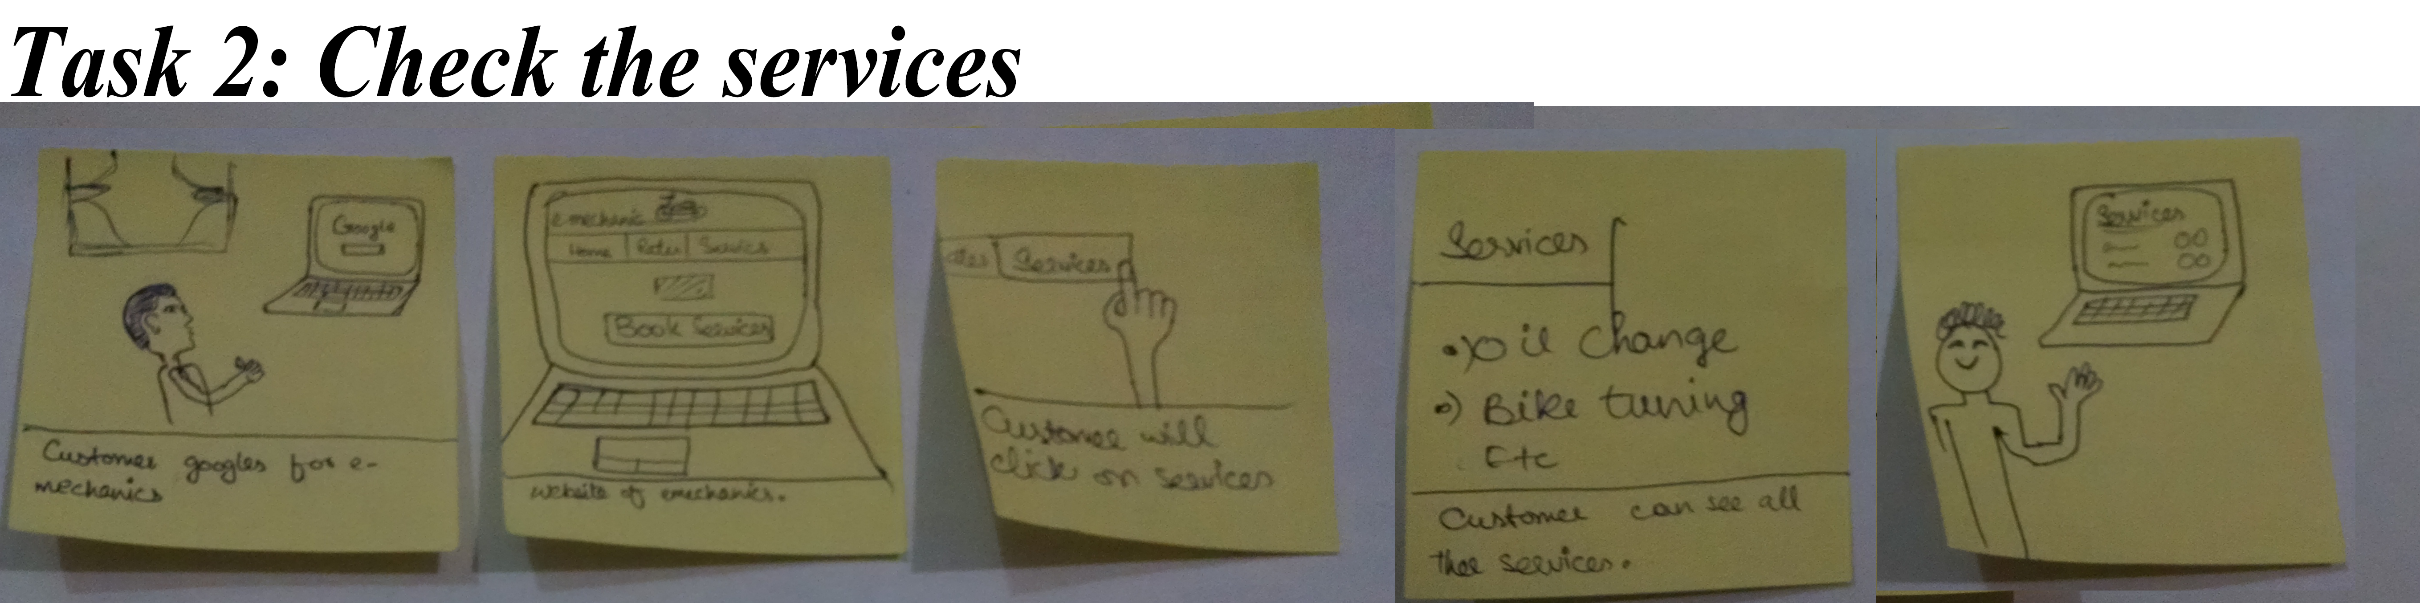 Task 2: Check the services
Google
Customer googles for e-
mechanics
e-mechanic
Home Rates Services
Book Services
website of emechanics.
ates Services
Customer will
click on services
Services
•) Oil change
•) Bike tuning
Etc
Customer can see all
thee services.
Services